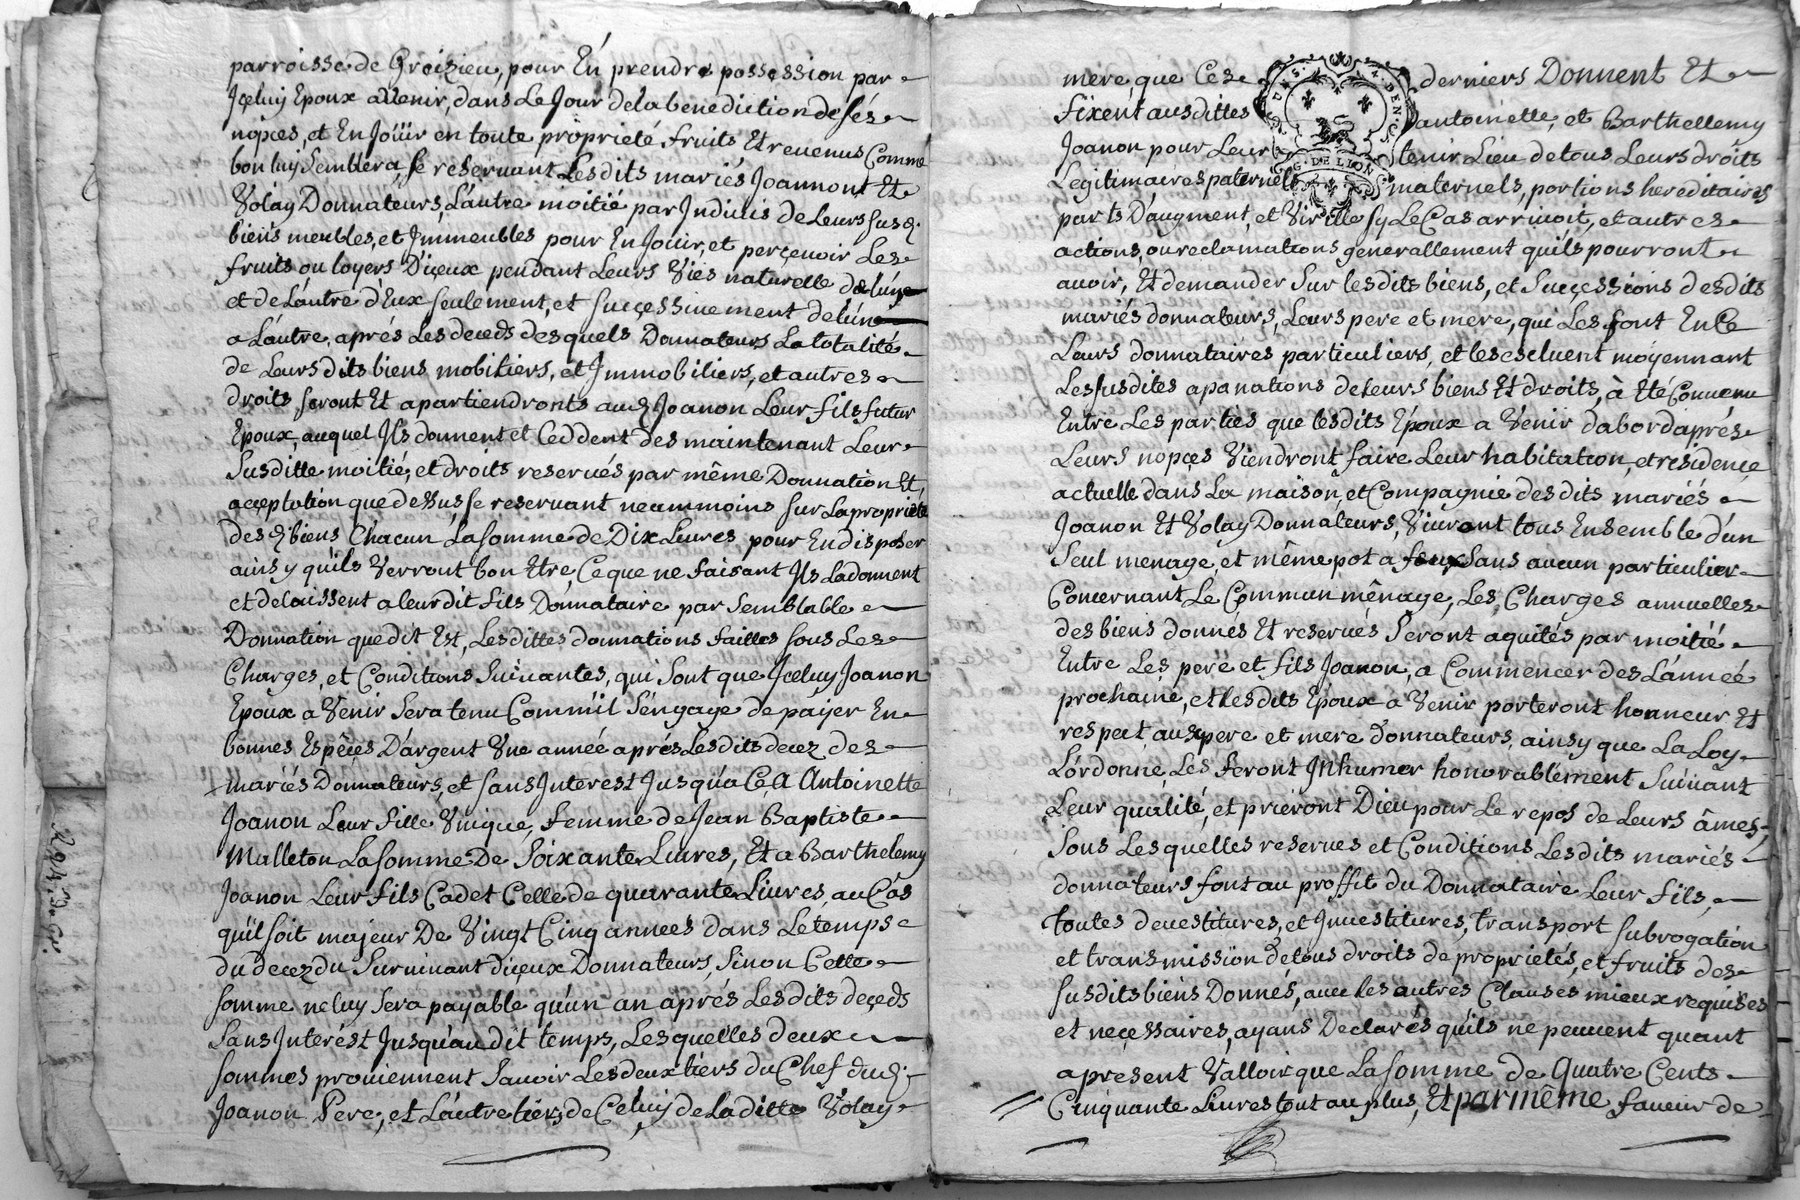 parroisse de Groizieu, pour En prendre possession par
Jceluy Epoux avenir, dans Le Jour dela benediction de sés
nopces, et En Joüir en toute proprieté fruits Et revenus Comme
bon luy Semblera se reservant Lesdits mariés Joannon Et
Volay Donnateurs, L'autre moitié par Jndivis de Leurs susd.
biens meubles, et Jmmeubles pour En Jouir, et perçevoir Les
fruits ou loyers D'içeux pendant Leurs Viés naturelle de lúne
et de L'autre d'Eux seulement, et suççessivement de lún
a L'autre, aprés Les deceds desquels Donnateurs La totalité
de Leurs dits biens mobiliers, et Jmmobiliers, et autres
droits seront Et apartiendronts aud. Joanon Leur fils futur
Epoux, auquel Jls donnent et Ceddent des maintenant Leur
Susditte moitié, et droits reservés par même Donnation Et
acceptation que dessus se reservant neammoins sur La proprieté
desd. biens Chacun La somme de Dix Livres pour En disposer
ainsy qu'ils Verront bon Etre, Ce que ne faisant Jls La donnent
et delaissent a leur dit fils Donnataire par Semblable
Donnation que dit Est, Lesdittes donnations faittes sous Les
Charges, et Conditions Suivantes, qui sont que Jceluy Joanon
Epoux a Venir Sera tenu Comm'il S'éngage de païer En
bonnes Espêçes D'argent Vne année aprés Lesdits decez des
mariés Donnateurs, et sans Jnterest Jusqu'a Ce, A Antoinette
Joanon Leur fille Vnique, femme de Jean Baptiste
Malleton La somme De Soixante Livres, Et a Barthelemy
Joanon Leur fils Cadet Celle de quarante Livres, au Cas
qu'il soit majeur De Vingt Cinq années dans Le temps
du decez du Survivant d'içeux Donnateurs, Sinon Cette
somme ne luy Sera payable qu'un an aprés Lesdits deçeds
Sans Jnterést Jusqu'au dit temps, Lesquelles deux
sommes proviennent Savoir Les deux tiers du Chef dud.
Joanon Pere, et L'autre tiers de Celuy de Laditte Volay
mere, que Ces derniers Donnent Et
fixent ausdittes antoinette, et Barthellemy
Joanon pour Leur tenir Lieu de tous Leurs droits
Legitimaires paternels maternels, portions hereditaires
parts D'augment, et Virille sy Le Cas arrivoit, et autres
actions, ou reclamations generallement qu'ils pourront
avoir, Et demander Sur lesdits biens, et Suççessions desdits
mariés donnateurs, Leurs pere et mere, qui Les font En Ce
Leurs donnataires particuliers, et les escluent moyennant
Les susdites apanations de leurs biens Et droits, à Eté Convenu
Entre Les parties que lesdits Epoux a Venir d'abord aprés
Leurs nopçes Viendront faire Leur habitation, et residençe
actuelle dans La maison, et Compagnie des dits mariés
Joanon Et Volay Donnateurs, Vivront tous Ensemble d'un
Seul menage, et même pot a feux sans aucun particulier
Concernant Le Commun ménage, Les Charges annuelles
des biens donnés Et reservés Seront aquités par moitié
Entre Les peré et fils Joanon, a Commencer des L'année
prochaine, et lesdits Epoux a Venir porteront honneur Et
respect aux pere et mere donnateurs, ainsy que La Loy
L'ordonne, Les feront Jnhumer honorablement Suivant
Leur qualité, et priéront Dieu pour Le repos de Leurs âmes,
Sous Lesquelles reserves et Conditions Lesdits mariés
donnateurs font au proffit du Donnataire Leur fils,
toutes devestitures, et Jnvestitures, transport subrogation
et transmission de tous droits de proprietés, et fruits des
susdits biens Donnés, avec les autres Clauses mieux requises
et neçessaires, ayans Declarés qu'ils ne peuvent quant
apresent Valloir que La somme de Quatre Cents
Cinquante Livres tout au plus, Et par même faveur de
G. DE LION